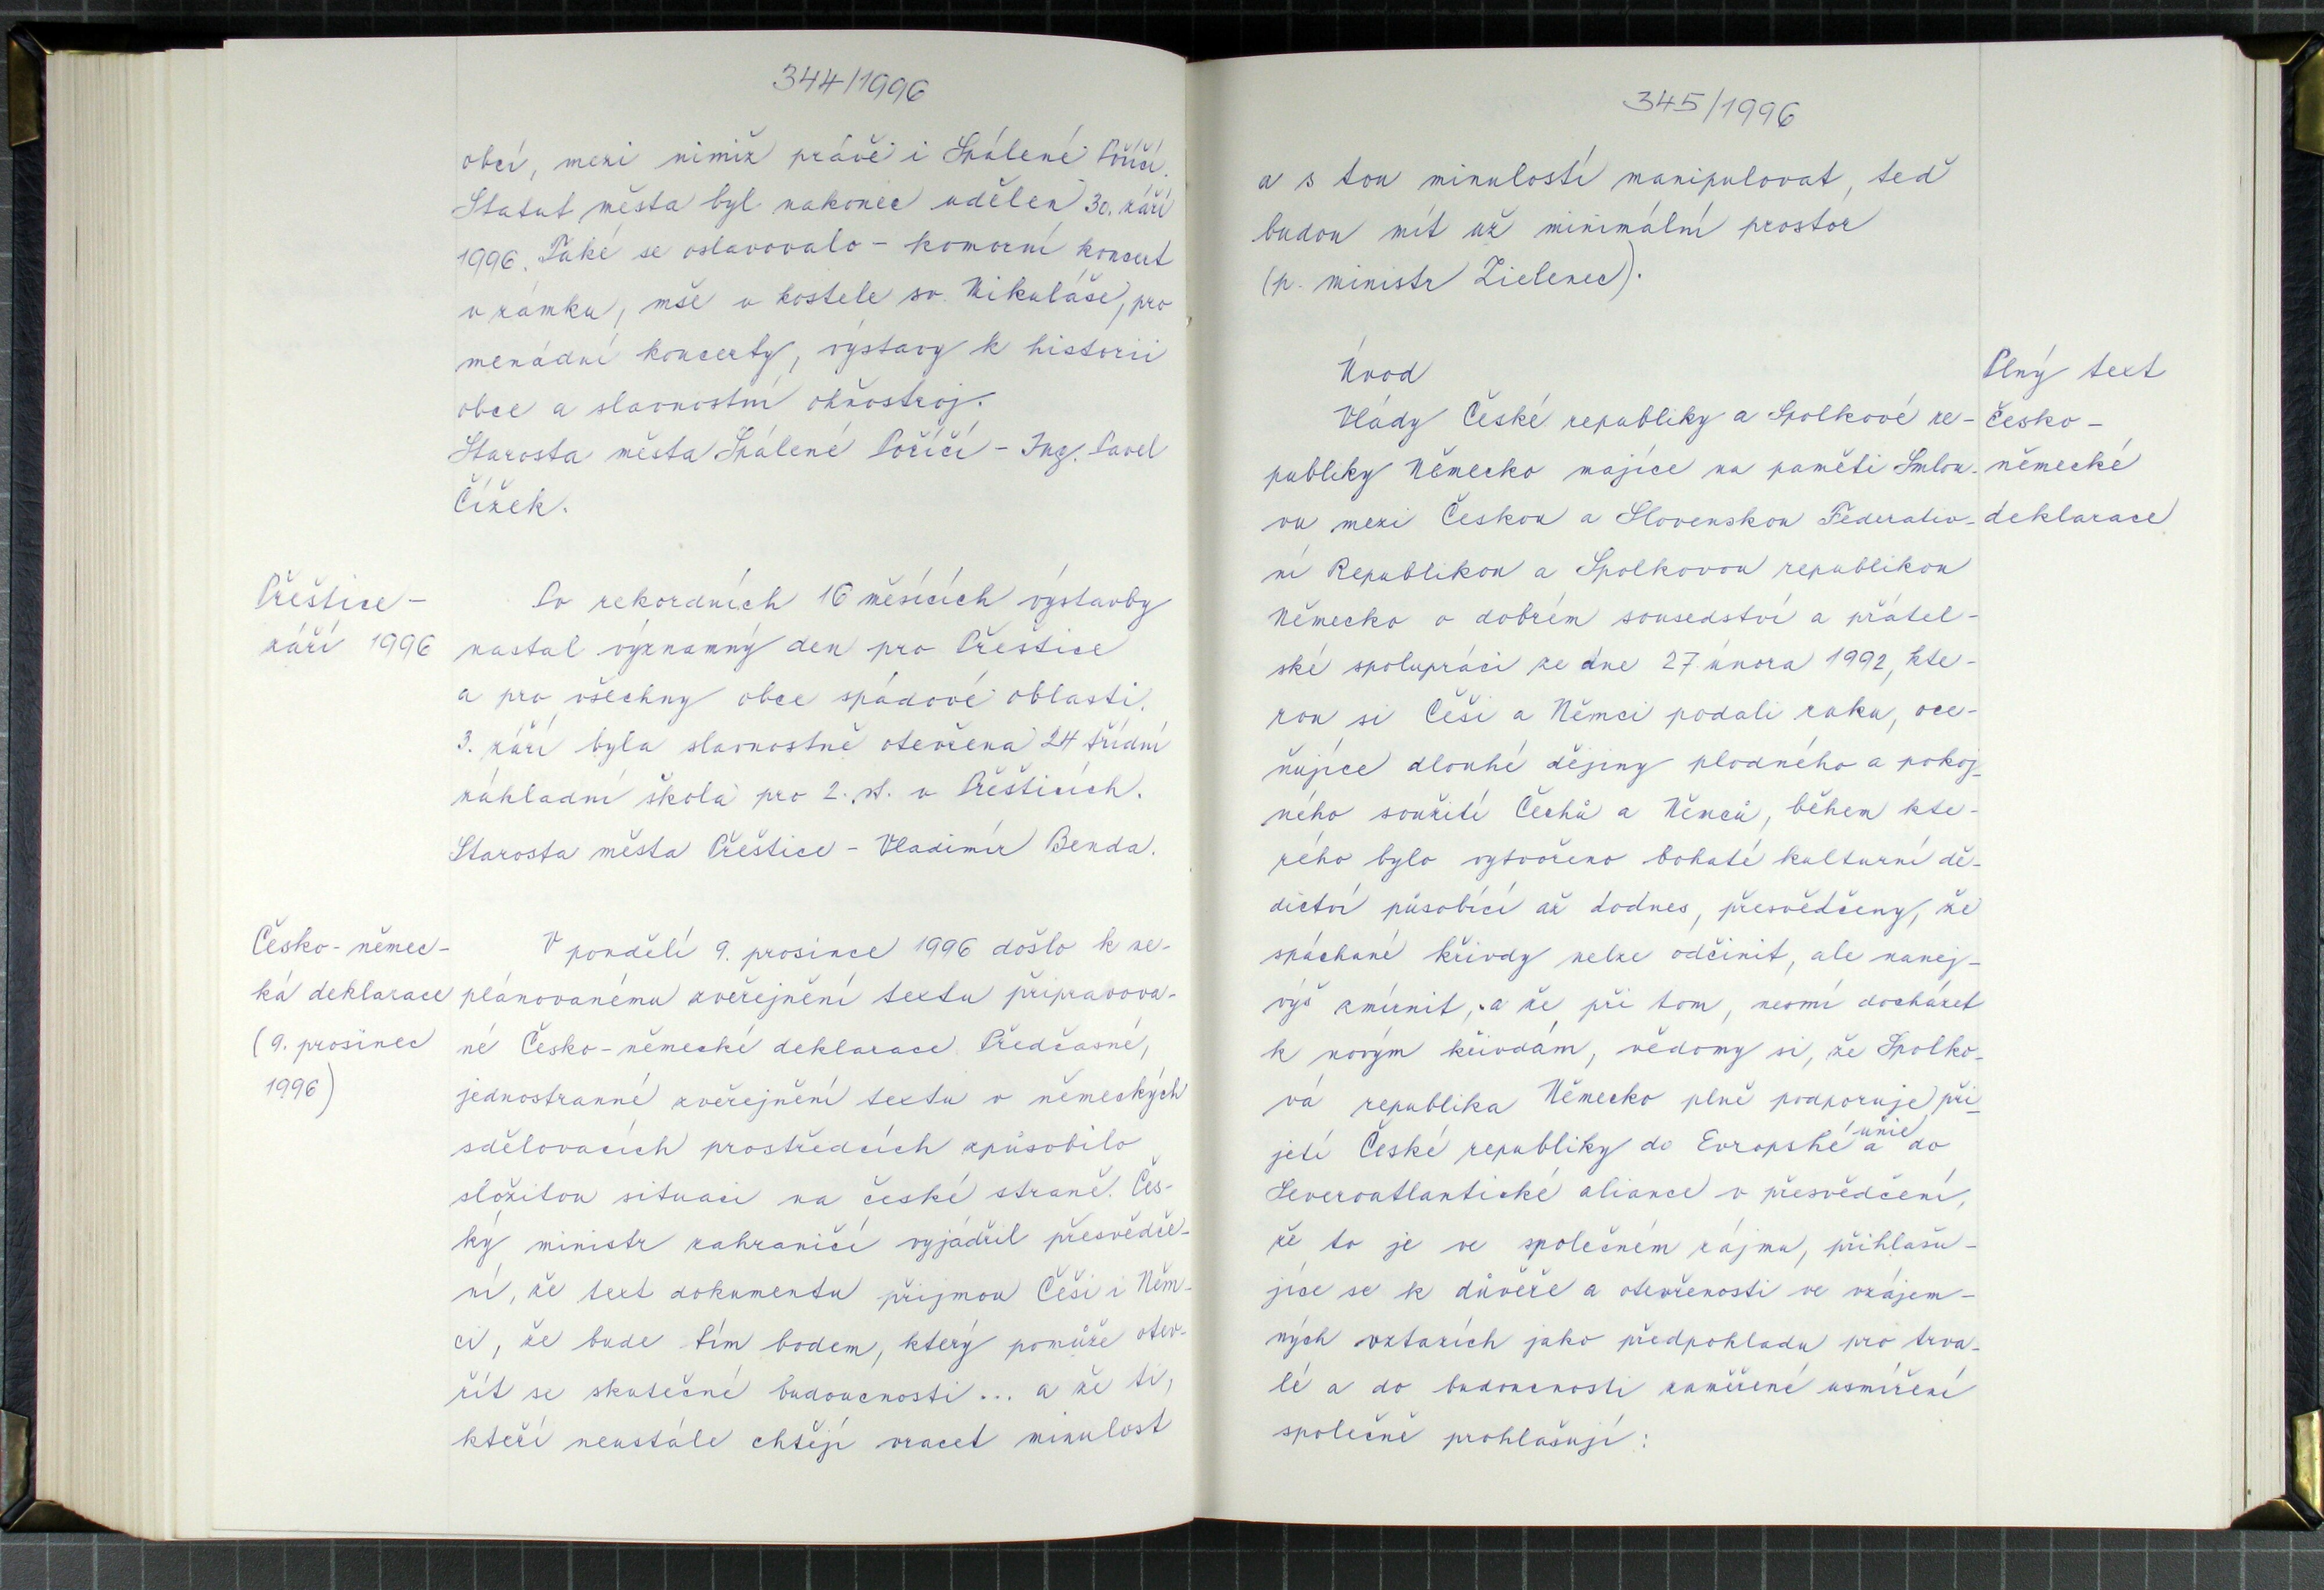 344/1996
obcí, mezi nimiž právě i Spálené Poříčí.
Statut města byl nakonec udělen 30. září
1996. Také se oslavovalo - komorní koncert
v zámku, mše v kostele sv. Mikuláše, pro
menádní koncerty, výstavy k historii
obce a slavnostní ohňostroj.
Starosta města Spálené Poříčí - Ing. Pavel
Čížek.
Přeštice -
září 1996
Po rekordních 16 měsících výstavby
nastal významný den pro Přeštice
a pro všechny obce spádové oblasti.
3. září byla slavnostně otevřena 24 třídní
základní škola pro 2. st. v Přešticích.
Starosta města Přeštice - Vladimír Benda.
Česko-němec-
ká deklarace
(9. prosinec
1996)
V pondělí 9. prosince 1996 došlo k ne-
plánovanému zveřejnění textu připravova-
né Česko-německé deklarace. Předčasné,
jednostranné zveřejnění textu v německých
sdělovacích prostředcích způsobilo
složitou situaci na české straně. Čes-
ký ministr zahraničí vyjádřil přesvědče-
ní, že text dokumentu přijmou Češi i Něm-
ci, že bude tím bodem, který pomůže otev-
řít se skutečné budoucnosti... a že ti,
kteří neustále chtějí vracet minulost
345/1996
a s tou minulostí manipulovat, teď
budou mít už minimální prostor
(p. ministr Zielenec).
Plný text
česko-
německé
deklarace
Úvod
Vlády České republiky a Spolkové re-
publiky Německo majíce na paměti Smlou-
vu mezi Českou a Slovenskou Federativ-
ní Republikou a Spolkovou republikou
Německo o dobrém sousedství a přátel-
ské spolupráci ze dne 27. února 1992, kte-
rou si Češi a Němci podali ruku, oce-
ňujíce dlouhé dějiny plodného a pokoj-
ného soužití Čechů a Němců, během kte-
rého bylo vytvořeno bohaté kulturní dě-
dictví působící až dodnes, přesvědčeny, že
spáchané křivdy nelze odčinit, ale nanej-
výš zmírnit, a že při tom, nesmí docházet
k novým křivdám, vědomy si, že Spolko-
vá republika Německo plně podporuje při-
jetí České republiky do Evropské unie a do
Severoatlantické aliance v přesvědčení,
že to je ve společném zájmu, přihlašu-
jíce se k důvěře a otevřenosti ve vzájem-
ných vztazích jako předpohladu pro trva-
lé a do budoucnosti zaměřené usmíření
společně prohlašují: